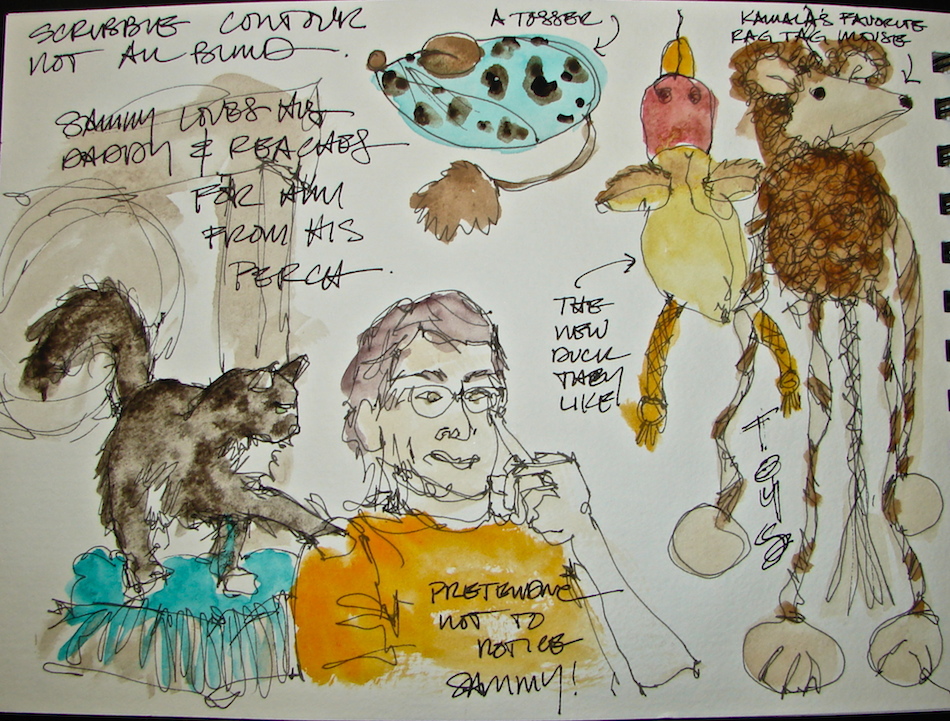 SCRIBBLE CONTOUR
NOT ALL BLIND.
SAMMY LOVES HIS
DADDY & REACHES
FOR HIM
FROM HIS
PERCH.
A TOSSER
KAMALA'S FAVORITE
RAG TAG MOUSE
THE
NEW
DUCK
THEY
LIKE
TOYS
PRETENDING
NOT TO
NOTICE
SAMMY!